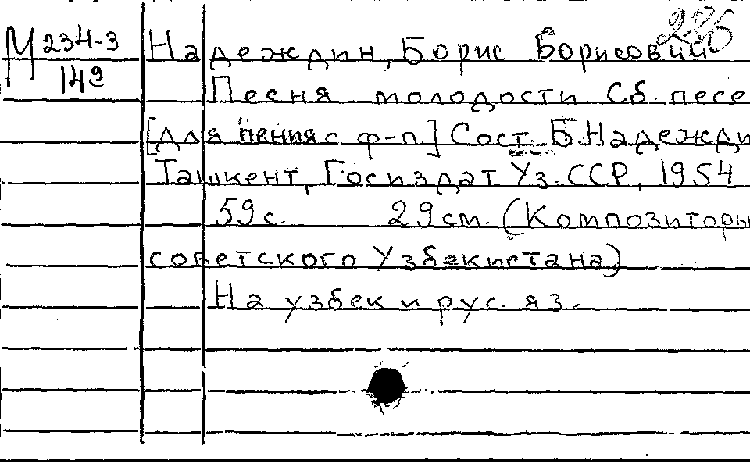 М 234-3
149
Надеждин, Борис Борисович
Песня молодости Сб. песе
[для пения с ф-п] Сост. Б. Надежди
Ташкент, Госиздат Уз.ССР, 1954
59 с. 29 см. (Композиторы
советского Узбекистана)
На узбек и рус. яз.